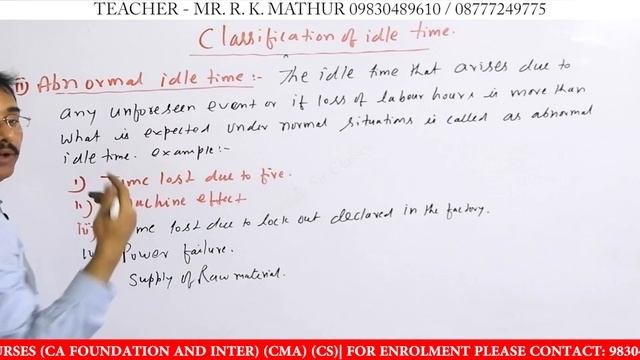 TEACHER - MR. R. K. MATHUR 09830489610 / 08777249775
Classification of idle time.
ii) Abnormal idle time:- The idle time that arises due to
any unforeseen event or if loss of labour hours is more than
what is expected under normal situations is called as abnormal
idle time. example:-
i) Time lost due to fire.
ii) Machine effect
iii) lost due to lock out declared in the factory.
Power failure.
Supply of Raw material.
URSES (CA FOUNDATION AND INTER) (CMA) (CS)| FOR ENROLMENT PLEASE CONTACT: 9830